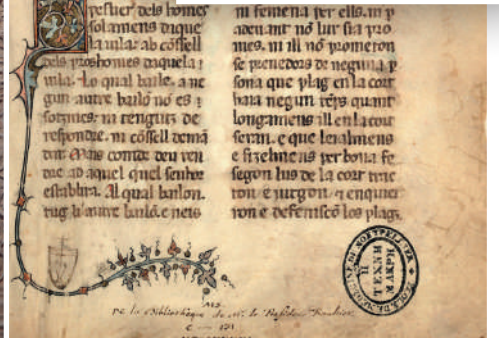 dels homes
solamens daque
la uila: ab cossell
dels proshomes daquela
uila. Lo qual baile. a ne
gun autre bailō nō es
sotzmes: ni tengutz de
respondre. ni cōssell demā
dar Mais comte deu ren
dre ad aquel quel senhor
establira. Al qual bailon.
tug li autre bailō. e neis
ni femena per ells. ni p
aden ant nō lur sia pro
mes. ni ill nō prometon
se prenedors de neguna p
sona que plag en la cort
haia negun tēps quant
longamens ill en la cort
seran. e que leialmens
e fizelmens per bona fe
segon lus de la cort trac
ton e iutgon. e enquier
ron e defeniscō los plags.
ECOLE DE MEDECINE DE MONTPELLIER
MS
De la Bibliothèque de Mr. le Président Bouhier